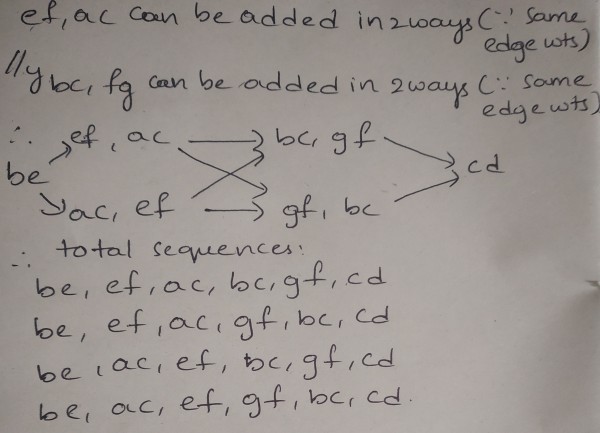 ef, ac can be added in 2 ways (∵ same
edge wts)
//y bc, fg can be added in 2 ways (∵ same
edge wts)
∴ ef, ac → bc, gf
be cd
ac, ef → gf, bc
∴ total sequences:
be, ef, ac, bc, gf, cd
be, ef, ac, gf, bc, cd
be, ac, ef, bc, gf, cd
be, ac, ef, gf, bc, cd.